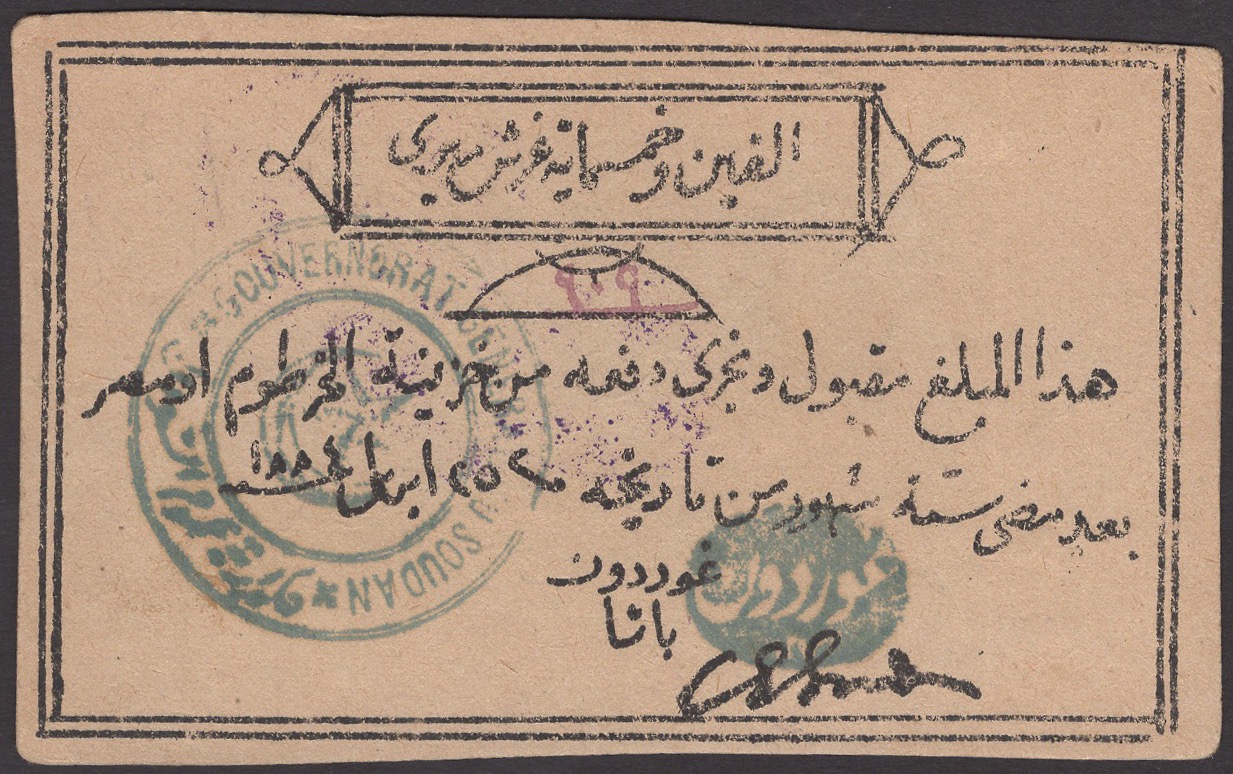 الفين وخمسماية غرش ميرى
٩٠٩٠
هذا المبلغ مقبول وتجرى دفعه من خزينة الخرطوم او مصر
بعد مضى ستة شهور من تاريخه ٢٥ ابريل سنة ١٨٨٤
غوردون
باشا
GOUVERNORAT GENERAL DU SOUDAN